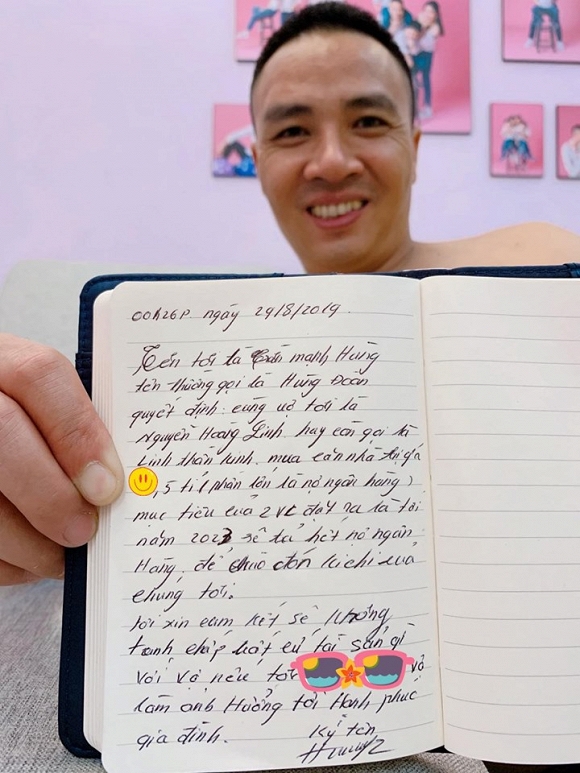 00h26p ngày 29/8/2019.
Tên tôi là Trần mạnh Hùng
tên thường gọi là Hùng Đoàn
quyết định cùng vợ tôi là
Nguyễn Hoàng Linh hay còn gọi là
Linh mua căn nhà trị giá
,5 tỉ (phần lớn là nợ ngân hàng)
mục tiêu của 2 VC đặt ra là tới
năm 2023 sẽ trả hết nợ ngân
Hàng. để đón kichi của
chúng tôi.
Tôi xin cam kết sẽ không
tranh chấp bất cứ tài sản gì
Với Vợ nếu tôi và
làm anh Hưởng tới Hạnh phúc
gia đình. Ký tên